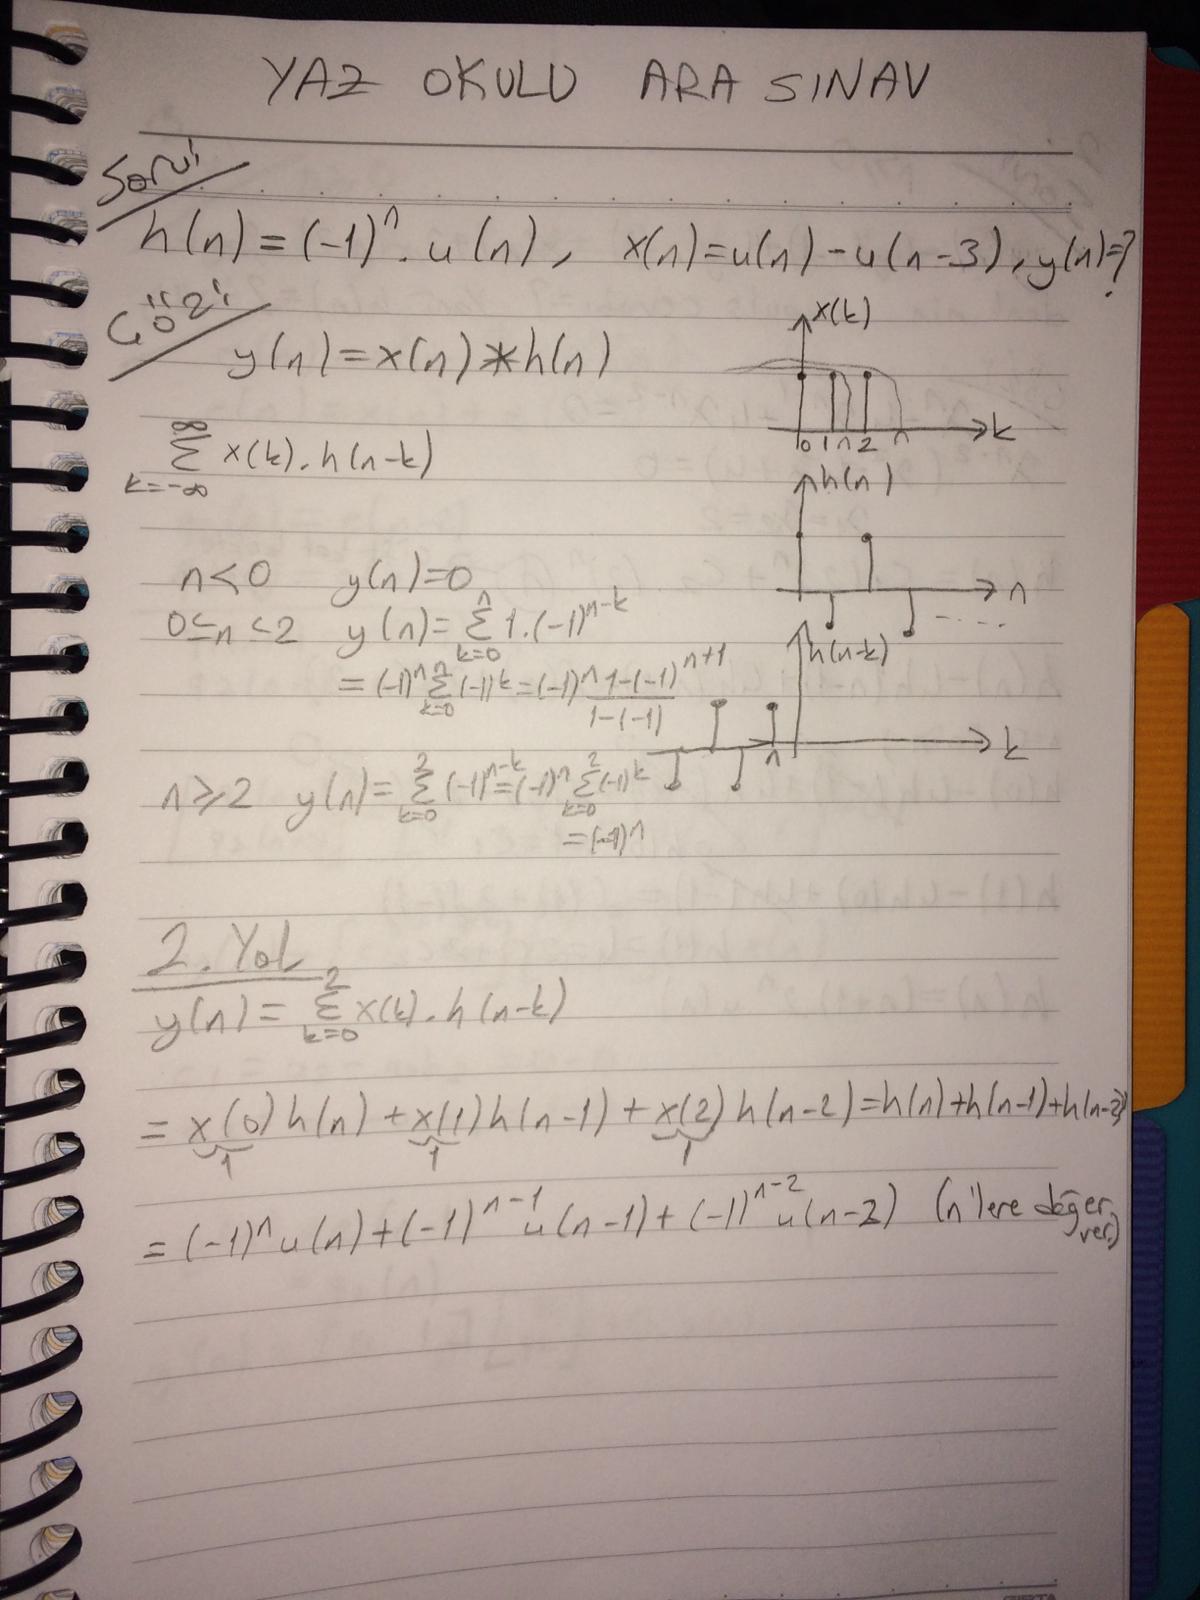 YAZ OKULU ARA SINAV
Soru:
h(n) = (-1)^n . u(n), x(n)=u(n)-u(n-3), y(n)=?
Çöz:
y(n) = x(n) * h(n)
x(k)
0 1 n 2 n k
∑_{k=-∞}^{∞} x(k). h(n-k)
h(n)
n
n<0 y(n)=0
0≤n<2 y(n)= ∑_{k=0}^{n} 1.(-1)^{n-k}
h(n-k)
= (-1)^n ∑_{k=0}^{n} (-1)^k = (-1)^n \frac{1-(-1)^{n+1}}{1-(-1)}
n k
n≥2 y(n)= ∑_{k=0}^{2} (-1)^{n-k} = (-1)^n ∑_{k=0}^{2} (-1)^k
= (-1)^n
2. Yol
y(n) = ∑_{k=0}^{2} x(k). h(n-k)
= x(0) h(n) + x(1) h(n-1) + x(2) h(n-2) = h(n)+h(n-1)+h(n-2)
1 1 1
= (-1)^n u(n) + (-1)^{n-1} u(n-1) + (-1)^{n-2} u(n-2) (n'lere değer
ver.)